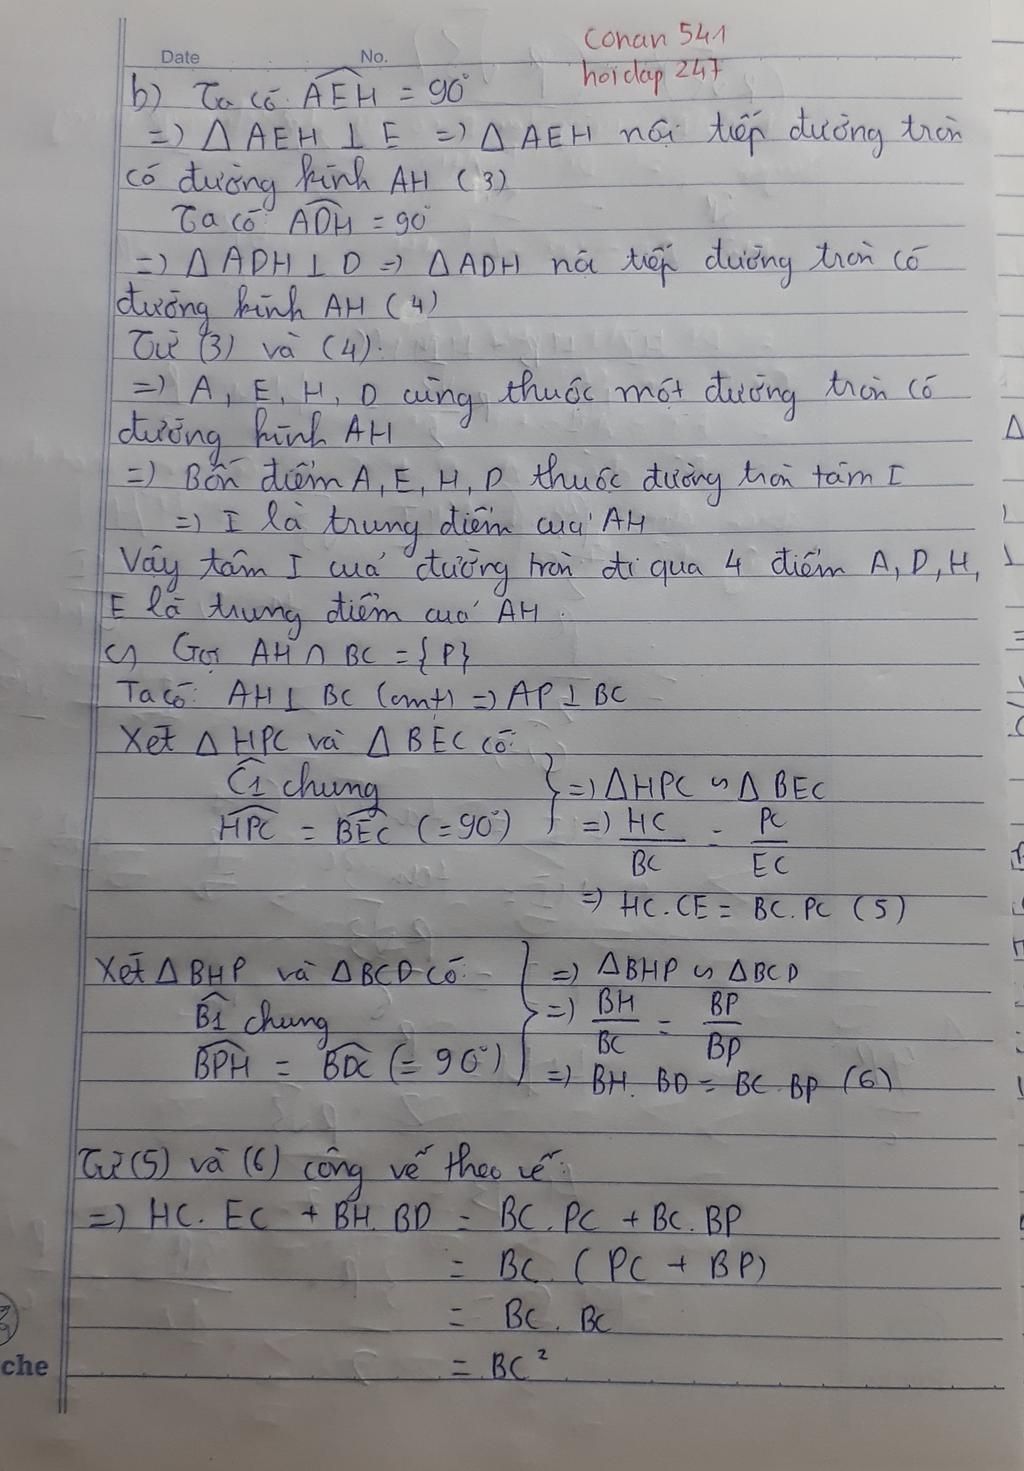 Date No.
Conan 541
hoidap 247
b) Ta có AEH = 90°
=) Δ AEH ⊥ E =) Δ AEH nội tiếp đường tròn
có đường kính AH (3)
Ta có ADH = 90°
=) Δ ADH ⊥ D =) Δ ADH nội tiếp đường tròn có
đường kính AH (4)
Từ (3) và (4):
=) A, E, H, D cùng thuộc một đường tròn có
đường kính AH
=) Bốn điểm A, E, H, D thuộc đường tròn tâm I
=) I là trung điểm của AH
Vậy tâm I của đường tròn đi qua 4 điểm A, D, H,
E là trung điểm của AH.
c) Gọi AH ∩ BC = {P}
Ta có: AH ⊥ BC (cmt) =) AP ⊥ BC
Xét Δ HPC và Δ BEC có:
C1 chung
HPC = BEC (=90°)
=) ΔHPC ∽ Δ BEC
=) HC/BC = PC/EC
=) HC.CE = BC.PC (5)
Xét Δ BHP và ΔBCD có:
B1 chung
BPH = BDC (= 90°)
=) ΔBHP ∽ ΔBCD
=) BH/BC = BP/BP
=) BH. BD = BC. BP (6)
Từ (5) và (6) cộng vế theo vế:
=) HC. EC + BH. BD = BC. PC + BC. BP
= BC. (PC + BP)
= BC. BC
= BC²
che